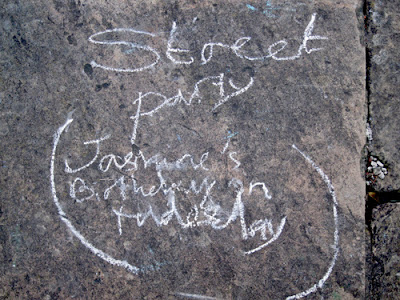 Street
party
(Jasmine's
Birthday on
)